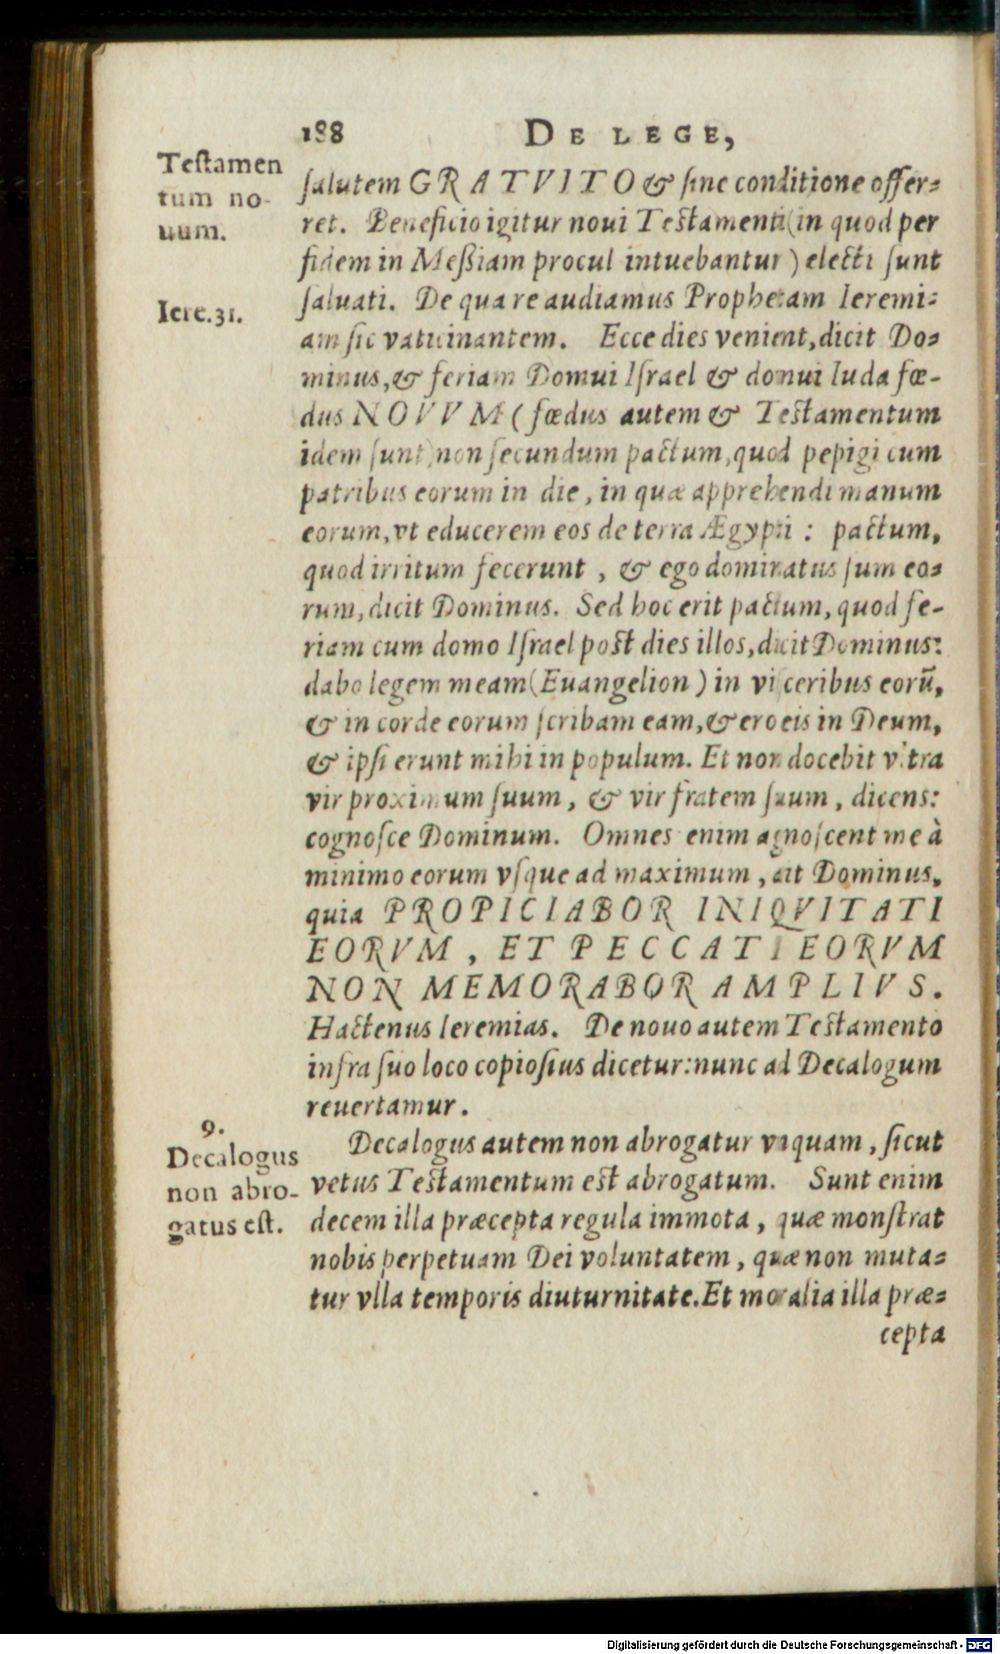 188 DE LEGE,
Testamen
tum no-
uum.
salutem GRATVITO & sine conditione offer-
ret. Beneficio igitur noui Testamenti (in quod per
fidem in Messiam procul intuebantur) electi sunt
saluati. De qua re audiamus Prophetam Ieremi-
Iere.31.
am sic vaticinantem. Ecce dies venient, dicit Do-
minus, & feriam Domui Israel & domui Iuda fœ-
dus NOVVM (fœdus autem & Testamentum
idem sunt) non secundum pactum, quod pepigi cum
patribus eorum in die, in quæ apprehendi manum
eorum, vt educerem eos de terra Ægypti: pactum,
quod irritum fecerunt, & ego dominatus sum eo-
rum, dicit Dominus. Sed hoc erit pactum, quod fe-
riam cum domo Israel post dies illos, dicit Dominus:
dabo legem meam (Euangelion) in visceribus eorũ,
& in corde eorum scribam eam, & ero eis in Deum,
& ipsi erunt mihi in populum. Et non docebit vltra
vir proximum suum, & vir fratem suum, dicens:
cognosce Dominum. Omnes enim agnoscent me à
minimo eorum vsque ad maximum, ait Dominus,
quia PROPICIABOR INIQVITATI
EORVM, ET PECCATI EORVM
NON MEMORABOR AMPLIVS.
Hactenus Ieremias. De nouo autem Testamento
infra suo loco copiosius dicetur: nunc ad Decalogum
reuertamur.
9.
Decalogus
non abro-
gatus est.
Decalogus autem non abrogatur vnquam, sicut
vetus Testamentum est abrogatum. Sunt enim
decem illa præcepta regula immota, quæ monstrat
nobis perpetuam Dei voluntatem, quæ non muta-
tur vlla temporis diuturnitate. Et moralia illa præ-
cepta
Digitalisierung gefördert durch die Deutsche Forschungsgemeinschaft - DFG